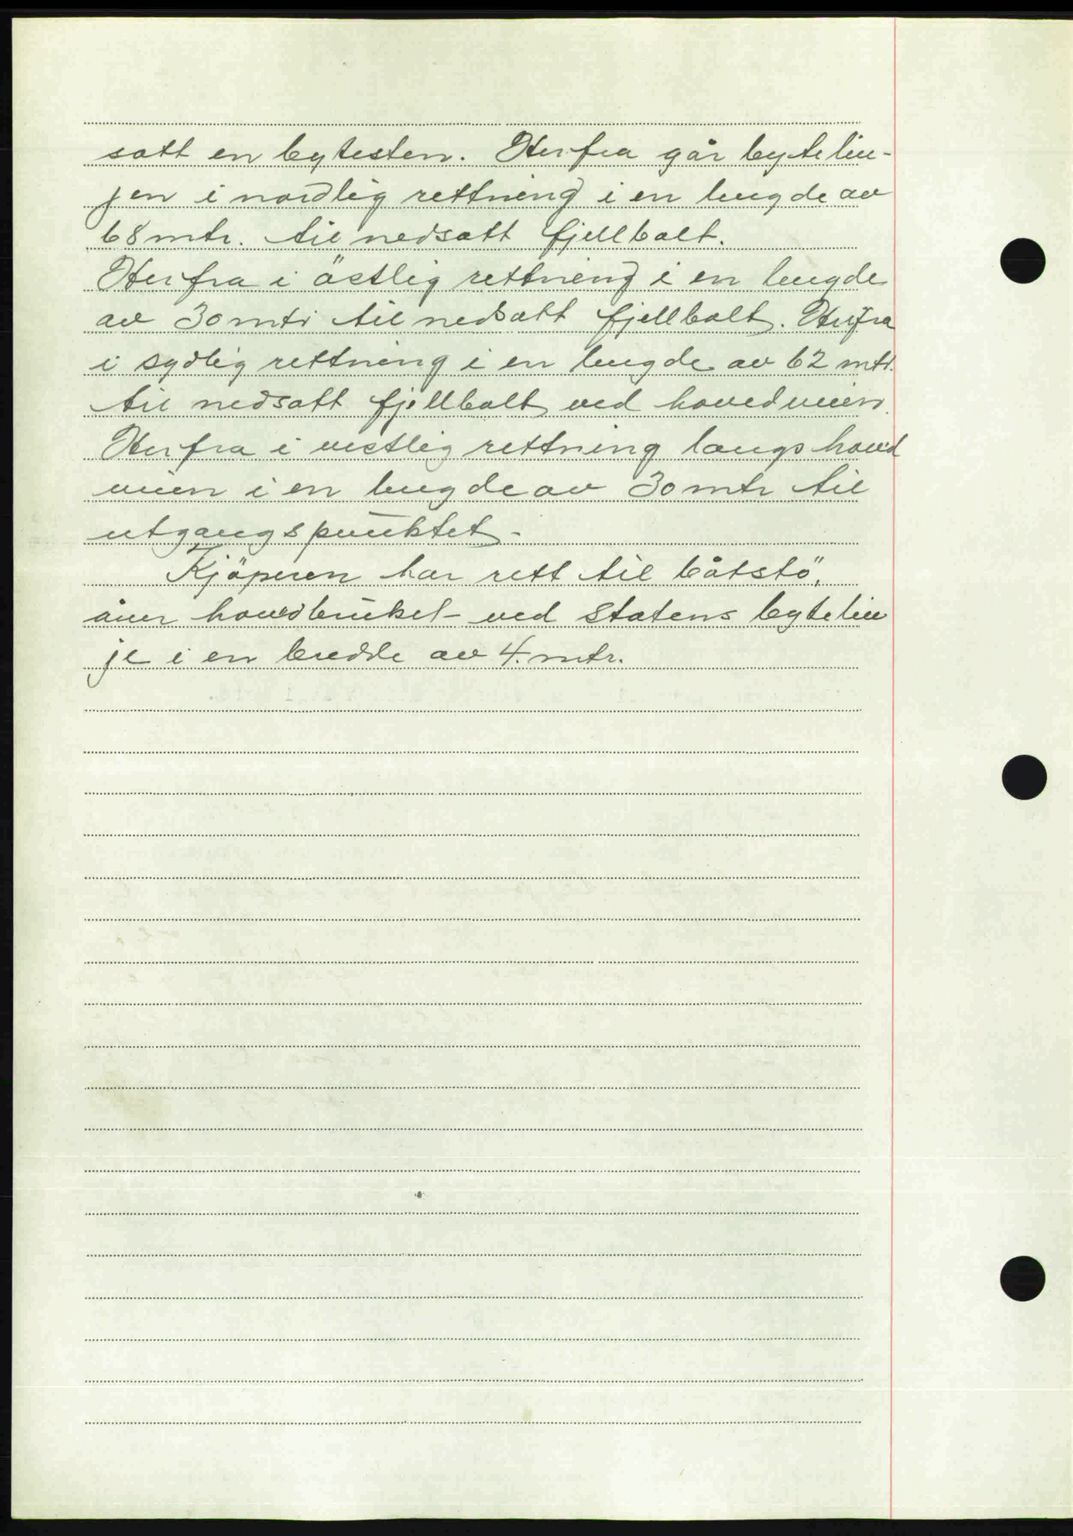 satt en bytesten. Herfra går bytelin-
jen i nordlig rettning i en lengde av
68 mtr. til nedsatt fjellbolt.
Herfra i östlig rettning i en lengde
av 30 mtr til nedsatt fjellbolt. Herfra
i sydlig rettning i en lengde av 62 mtr.
til nedsatt fjellbolt ved hovedveien.
Herfra i vestlig rettning langs hoved
veien i en lengde av 30 mtr til
utgangspunktet.-
Kjöperen har rett til båtstö,
över hovedbruket ved statens bytelin
je i en bredde av 4. mtr.